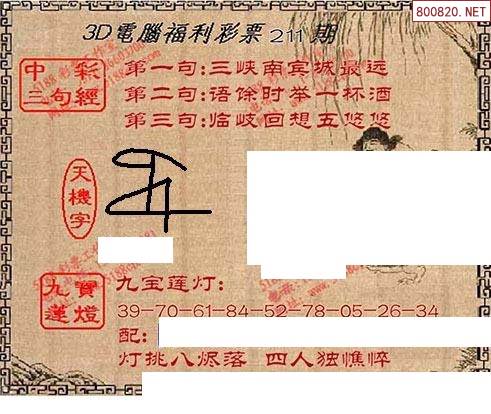 800820.NET
3D電腦福利彩票211期
中彩
三句經
第一句:三峡南宾城最远
第二句:语馀时举一杯酒
第三句:临岐回想五悠悠
天機字
九寶
蓮燈
九宝莲灯:
39-70-61-84-52-78-05-26-34
配:
灯挑八烬落 四人独憔悴